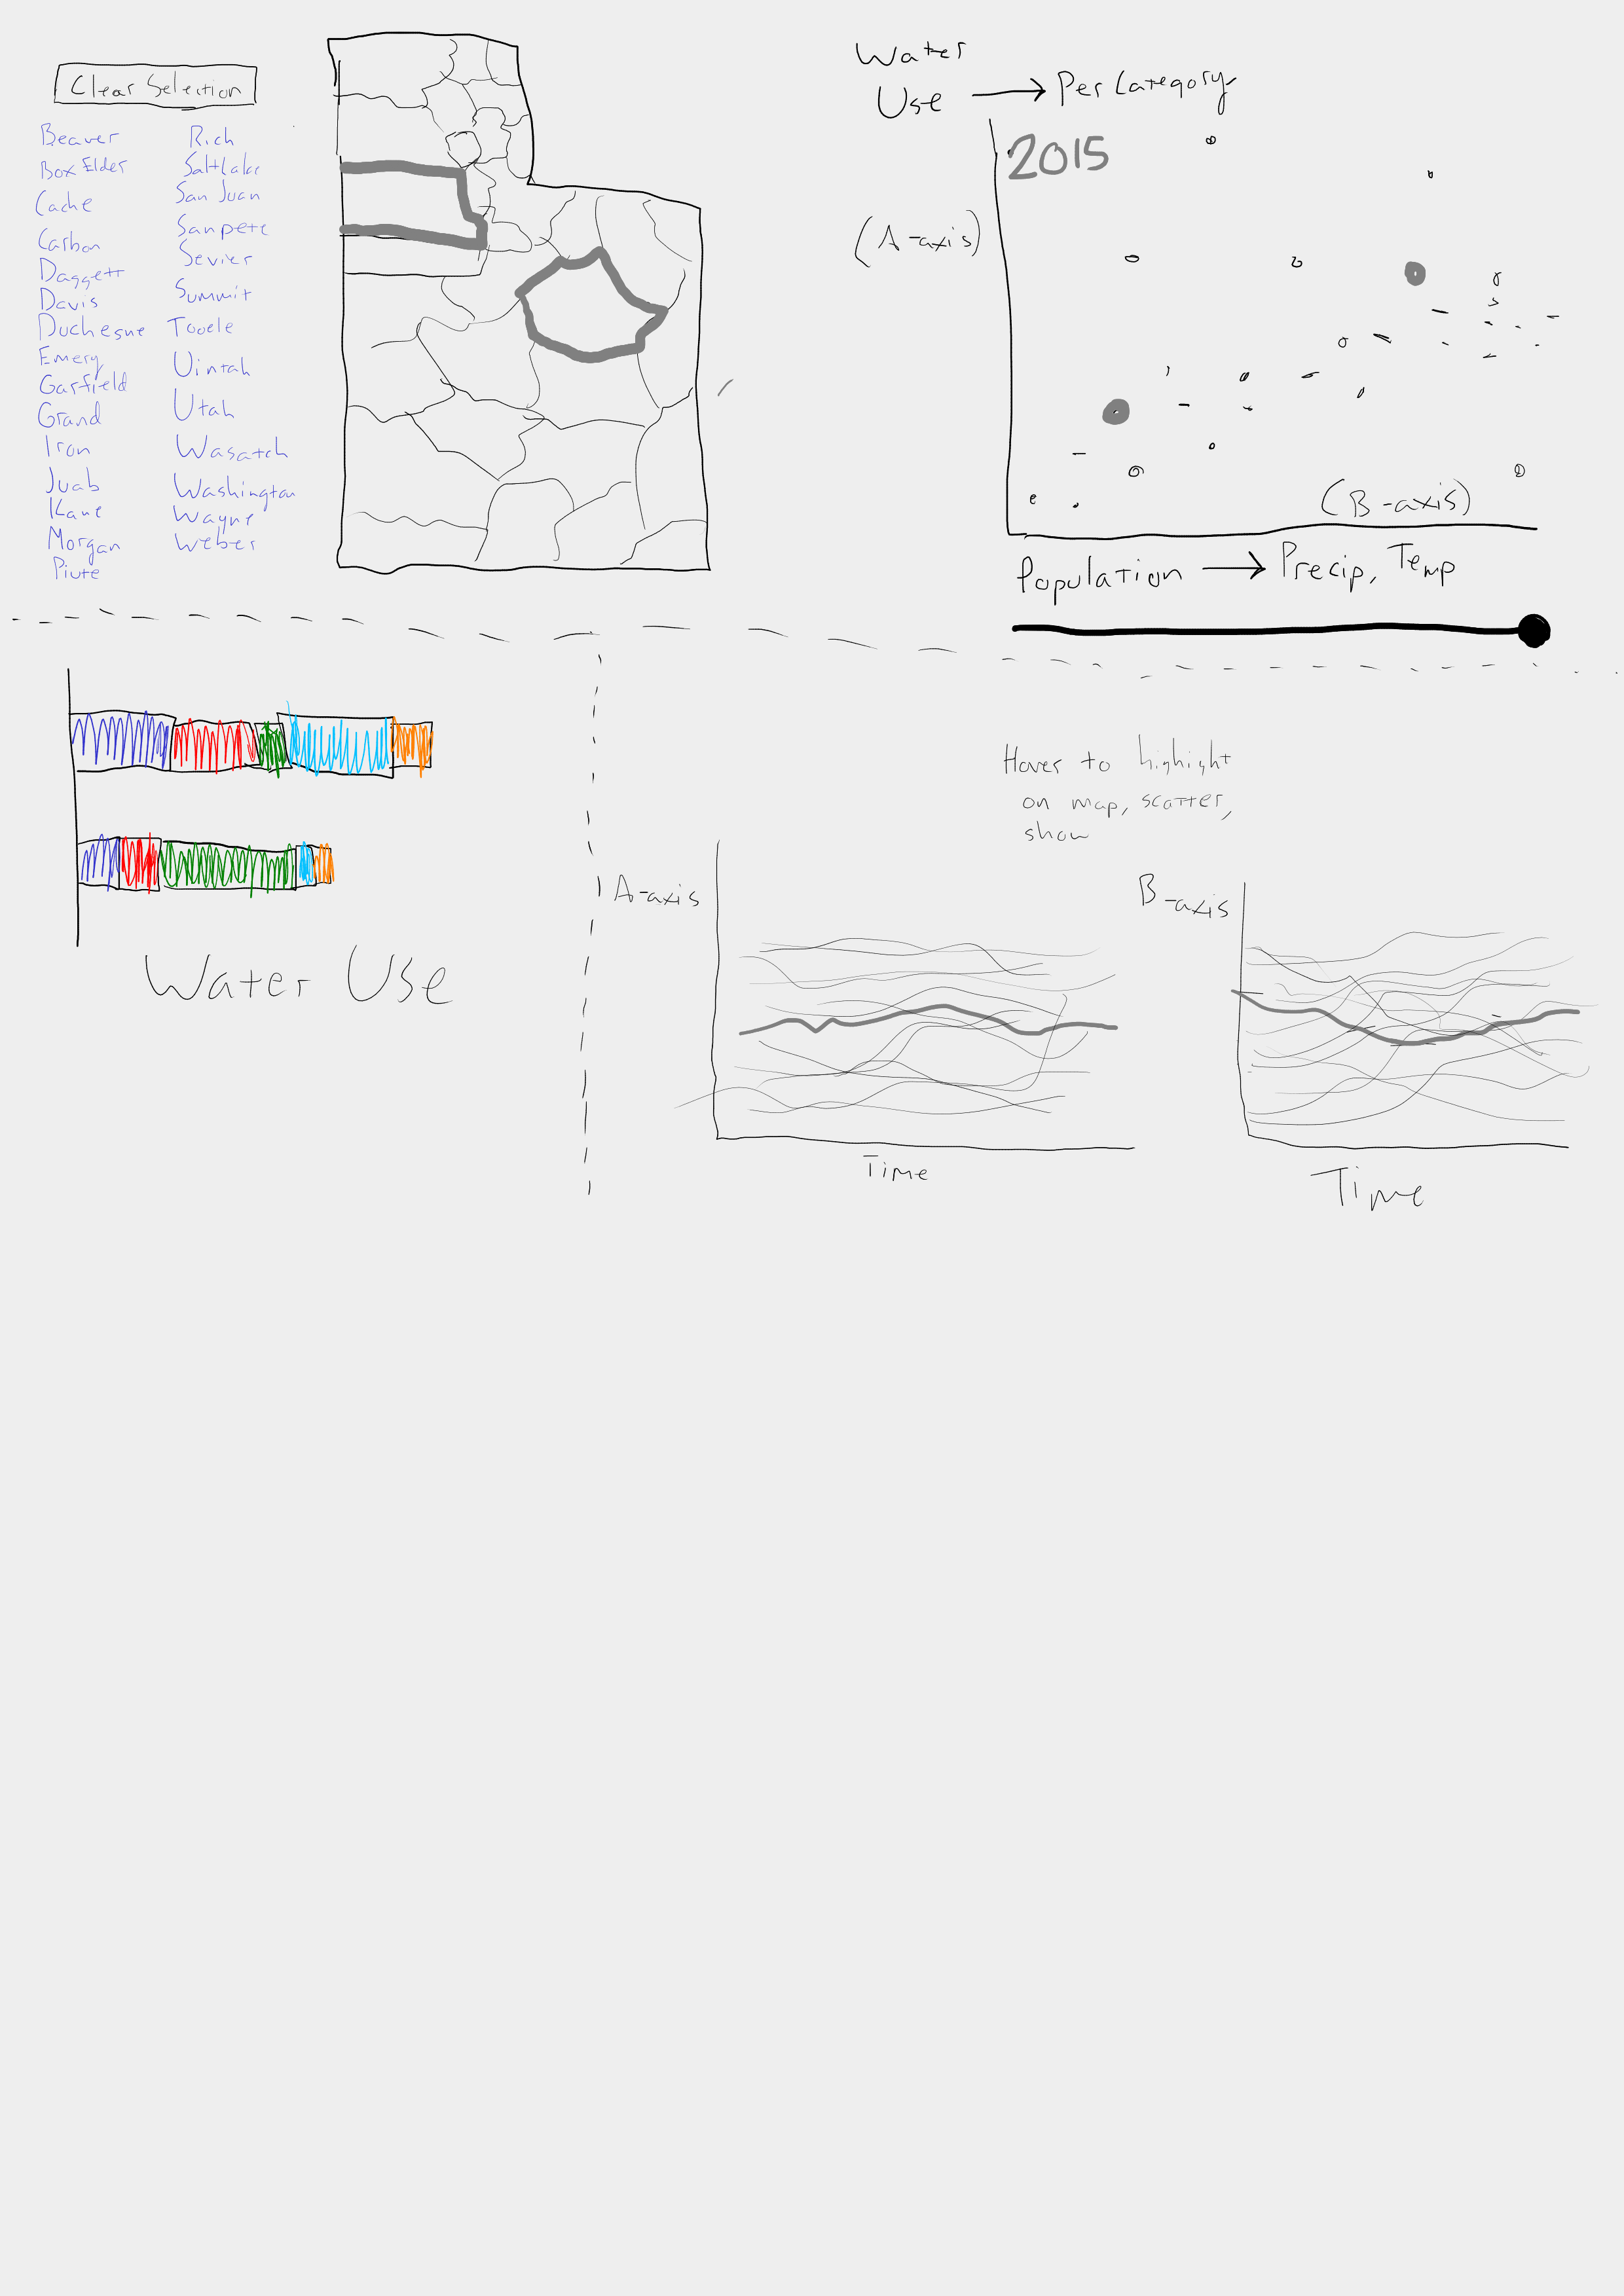 Clear Selection
Beaver
Box Elder
Cache
Carbon
Daggett
Davis
Duchesne
Emery
Garfield
Grand
Iron
Juab
Kane
Morgan
Piute
Rich
Salt Lake
San Juan
Sanpete
Sevier
Summit
Tooele
Uintah
Utah
Wasatch
Washington
Wayne
Weber
Water
Use → Per Category
2015
(A-axis)
(B-axis)
Population → Precip, Temp
Water Use
Hover to highight
on map, scatter,
show
A-axis
Time
B-axis
Time